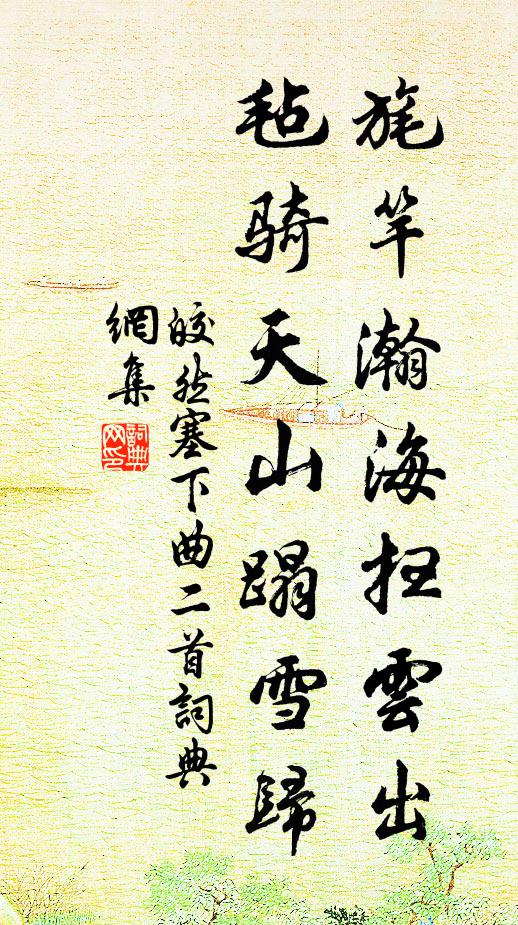 旄竿瀚海扫雲出
毡骑天山蹋雪歸
皎然塞下曲二首詞典
網集
詞典
网印